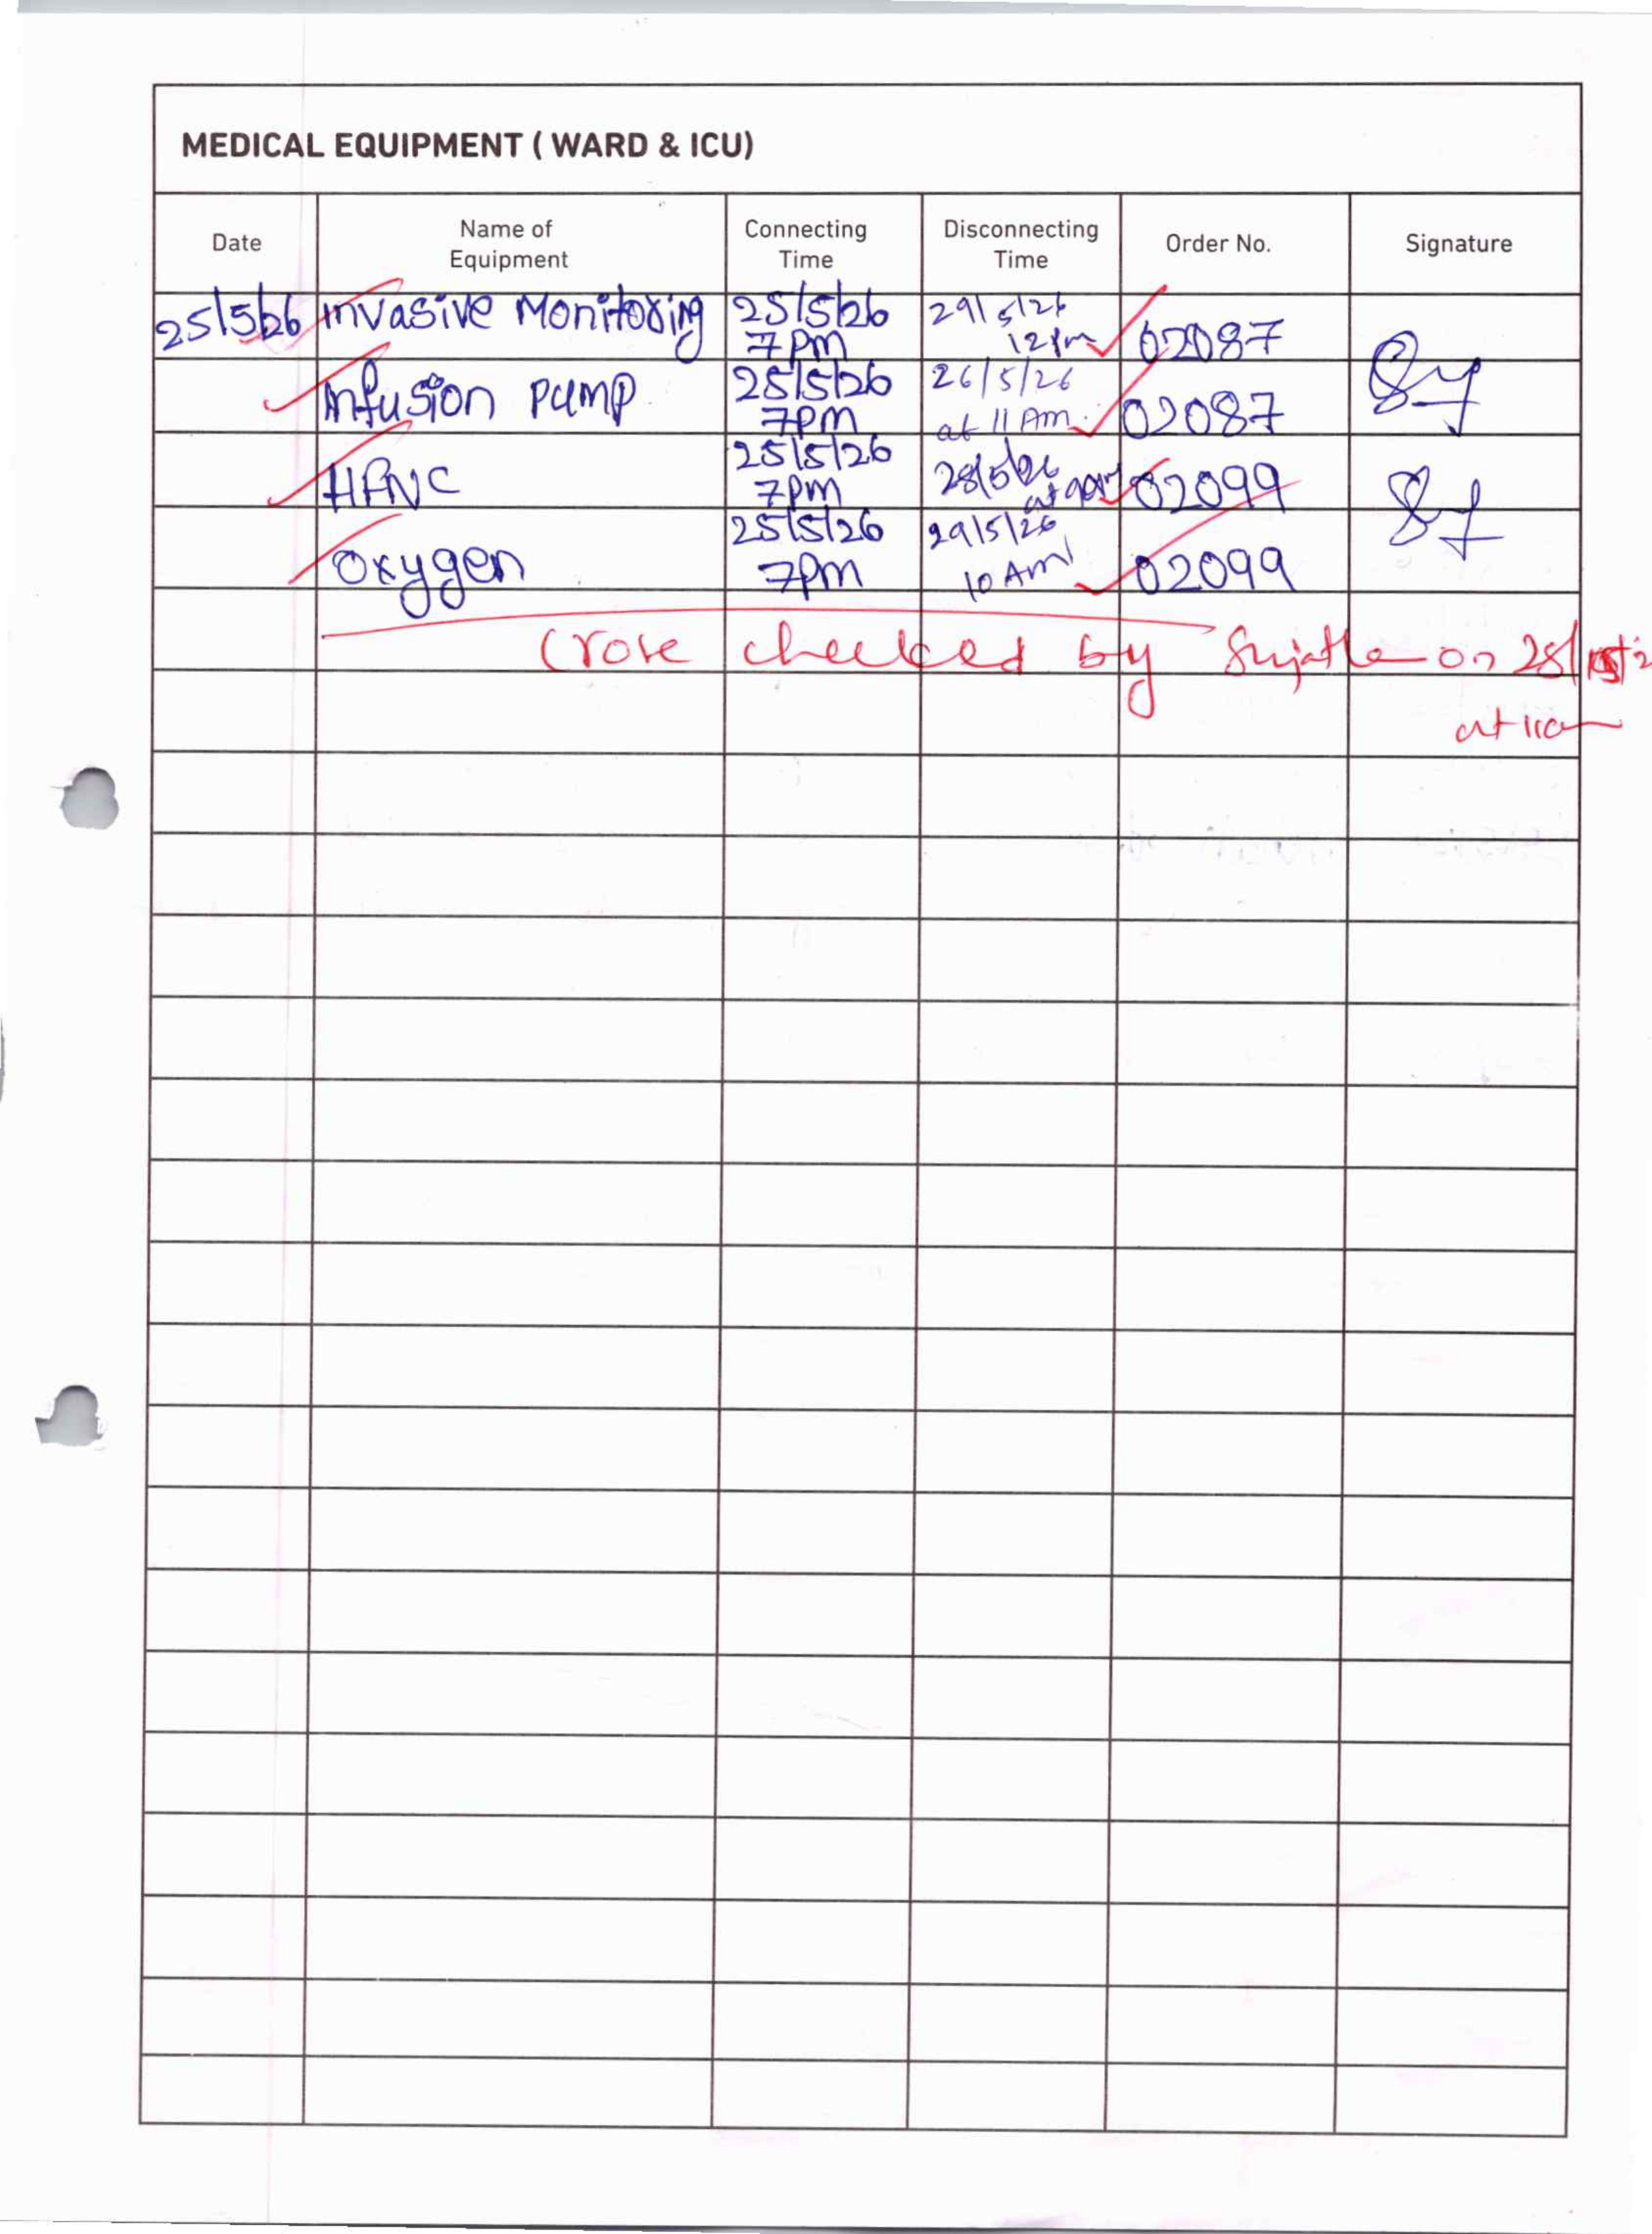 MEDICAL EQUIPMENT ( WARD & ICU)
Date Name of Equipment Connecting Time Disconnecting Time Order No. Signature
25/5/26 Invasive Monitoring 25/5/26 7pm 29/5/26 12pm 02087
Infusion pump 25/5/26 7pm 26/5/26 at 11 Am. 02087
HFNC 25/5/26 7pm 28/5/26 at 02099
Oxygen 25/5/26 7pm 29/5/26 10 Am 02099
Cross checked by Sujatha on
at